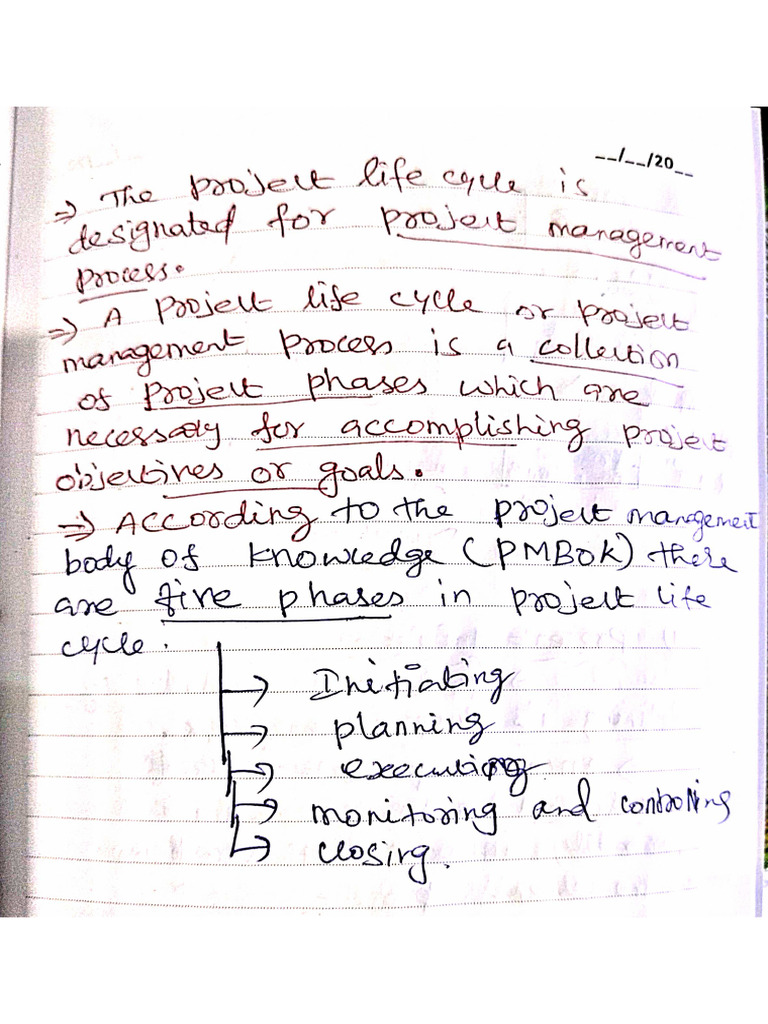 __/__/20__
⇒ The project life cycle is
designated for project management
process.
⇒ A project life cycle or project
management process is a collection
of project phases which are
necessary for accomplishing project
objectives or goals.
⇒ According to the project management
body of knowledge (PMBOK) there
are five phases in project life
cycle.
→ Initiating
→ planning
→ executing
→ monitoring and controlling
→ closing.